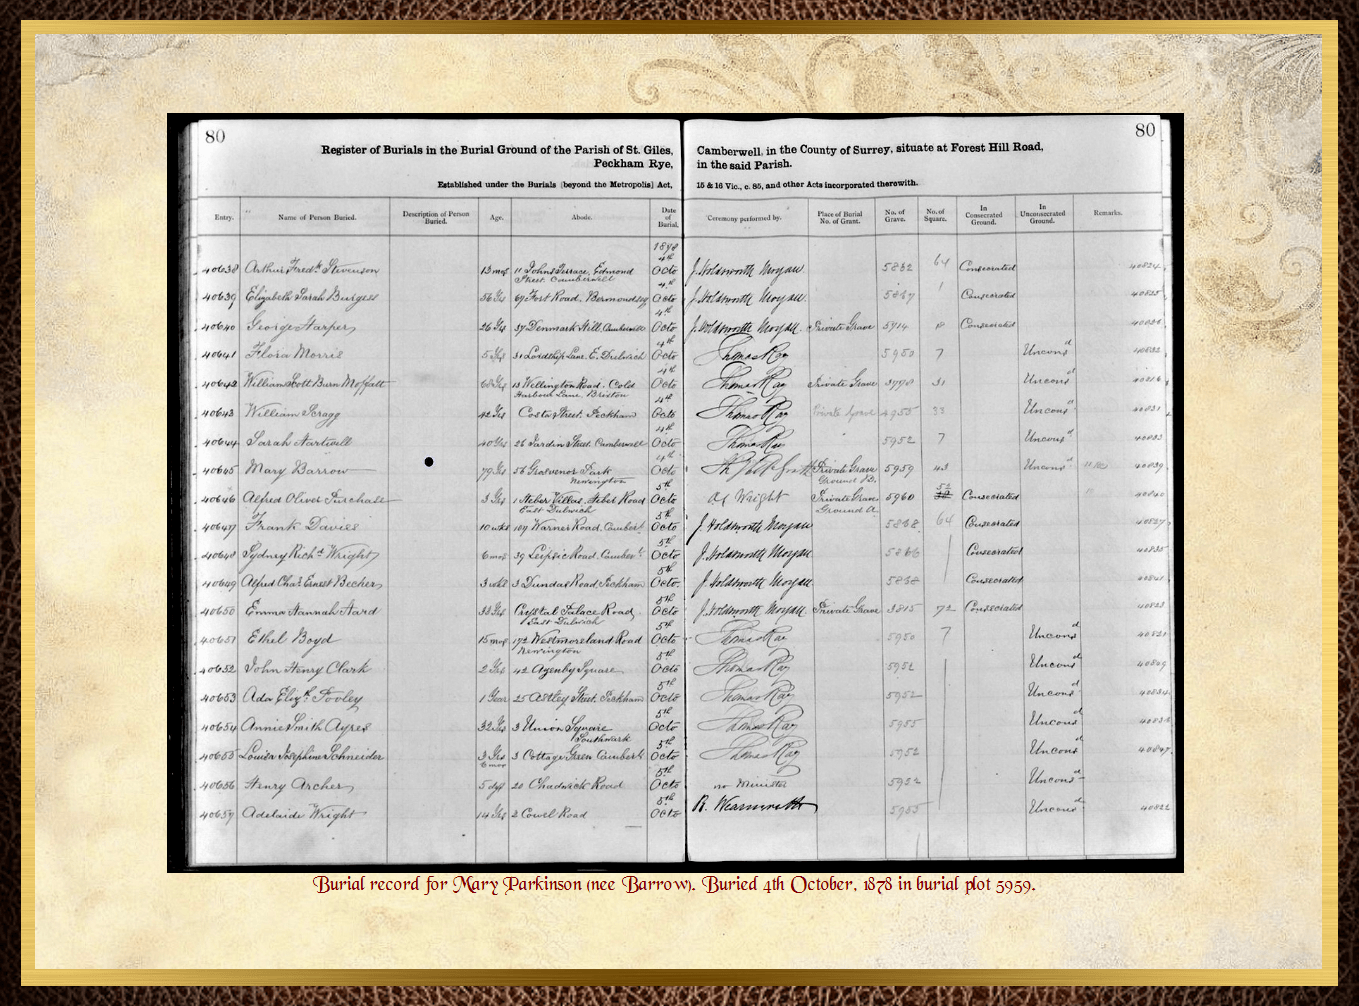 80
80
Register of Burials in the Burial Ground of the Parish of St. Giles, Camberwell, in the County of Surrey, situate at Forest Hill Road,
Peckham Rye, in the said Parish.
Established under the Burials (beyond the Metropolis) Act, 15 & 16 Vic., c. 85, and other Acts incorporated therewith.
Entry. Name of Person Buried. Description of Person Buried. Age. Abode. Date of Burial. Ceremony performed by. Place of Burial No. of Grant. No. of Grave. No. of Square. In Consecrated Ground. In Unconsecrated Ground. Remarks.
1878
40638 Arthur Fredk Stevenson 13 mos 11 Johns Terrace, Edmond Street. Camberwell 4th Octo J. Holdsworth Morgan 5832 64 Consecrated 40824
40639 Elizabeth Sarah Burgess 56 Yrs 69 Fort Road. Bermondsey 4th Octo J. Holdsworth Morgan Consecrated
40640 George Harper 26 Yrs 37 Denmark Hill. Camberwell 4th Octo J. Holdsworth Morgan Private Grave 5914 8 Consecrated
40641 Flora Morris 5 31 Lordship Lane. E. Dulwich 4th Octo Thomas Ray 5950 7 Unconsd
40642 William Scott Burn Moffatt 68 Yrs 13 Wellington Road. Cold Harbour Lane. Brixton 4th Octo Thomas Ray Private Grave 31 Unconsd 40816
40643 William Scragg 42 Yrs Street. Peckham 4th Octo Thomas Ray Private Grave 4955 33 Unconsd 40831
40644 Sarah Hartwell 40 Yrs 26 Jardin Street. Camberwell 4th Octo Thomas Ray 5952 7 Unconsd 40833
40645 Mary Barrow 79 Yrs 56 Grosvenor Park Newington 4th Octo Private Grave Ground B. 5959 43 Unconsd 40839
40646 Alfred Oliver Purchase 3 Yrs 1 Heber Villas, Heber Road East Dulwich 5th Octo Wright Private Grave Ground A 5960 52 Consecrated 40840
40647 Frank Davies 10 wks 109 Warner Road. Camberl 5th Octo J. Holdsworth Morgan 5838 64 Consecrated 40827
40648 Sydney Richd Wright 6 mos 39 Leipsic Road. Camberl 5th Octo J. Holdsworth Morgan Consecrated 40835
40649 Alfred Chas Ernest Becher 3 wks 3 Dundas Road, Peckham 5th Octo. J. Holdsworth Morgan 5838 Consecrated 40841
40650 Emma Hannah Hard 33 Yrs Crystal Palace Road. East Dulwich 5th Octo J. Holdsworth Morgan Private Grave 3815 72 Consecrated 40823
40651 Ethel Boyd 15 mos 172 Westmoreland Road Newington 5th Octo Thomas Ray 5950 7 Unconsd 40821
40652 John Henry Clark 2 Yrs 42 Square 5th Octo Thomas Ray 5952 Unconsd
40653 Ada Elizth Tooley 1 Year 25 Astley Street. Peckham 5th Octo Thomas Ray 5952 Unconsd 40834
40654 Annie Smith Ayres 32 Yrs 3 Union Square Southwark 5th Octo Thomas Ray 5955 Unconsd
40655 Louisa Josephine Schneider 3 Yrs 6 mos 3 Cottage Green Camberl 5th Octo Thomas Ray 5952 Unconsd
40656 Henry Archer 5 dys 20 Chadwick Road 5th Octo no Minister 5952 Unconsd
Adelaide Wright 14 Yrs 2 Cowel Road 5th Octo R. Wearmouth 5955 Unconsd 40822
Burial record for Mary Parkinson (nee Barrow). Buried 4th October, 1878 in burial plot 5959.